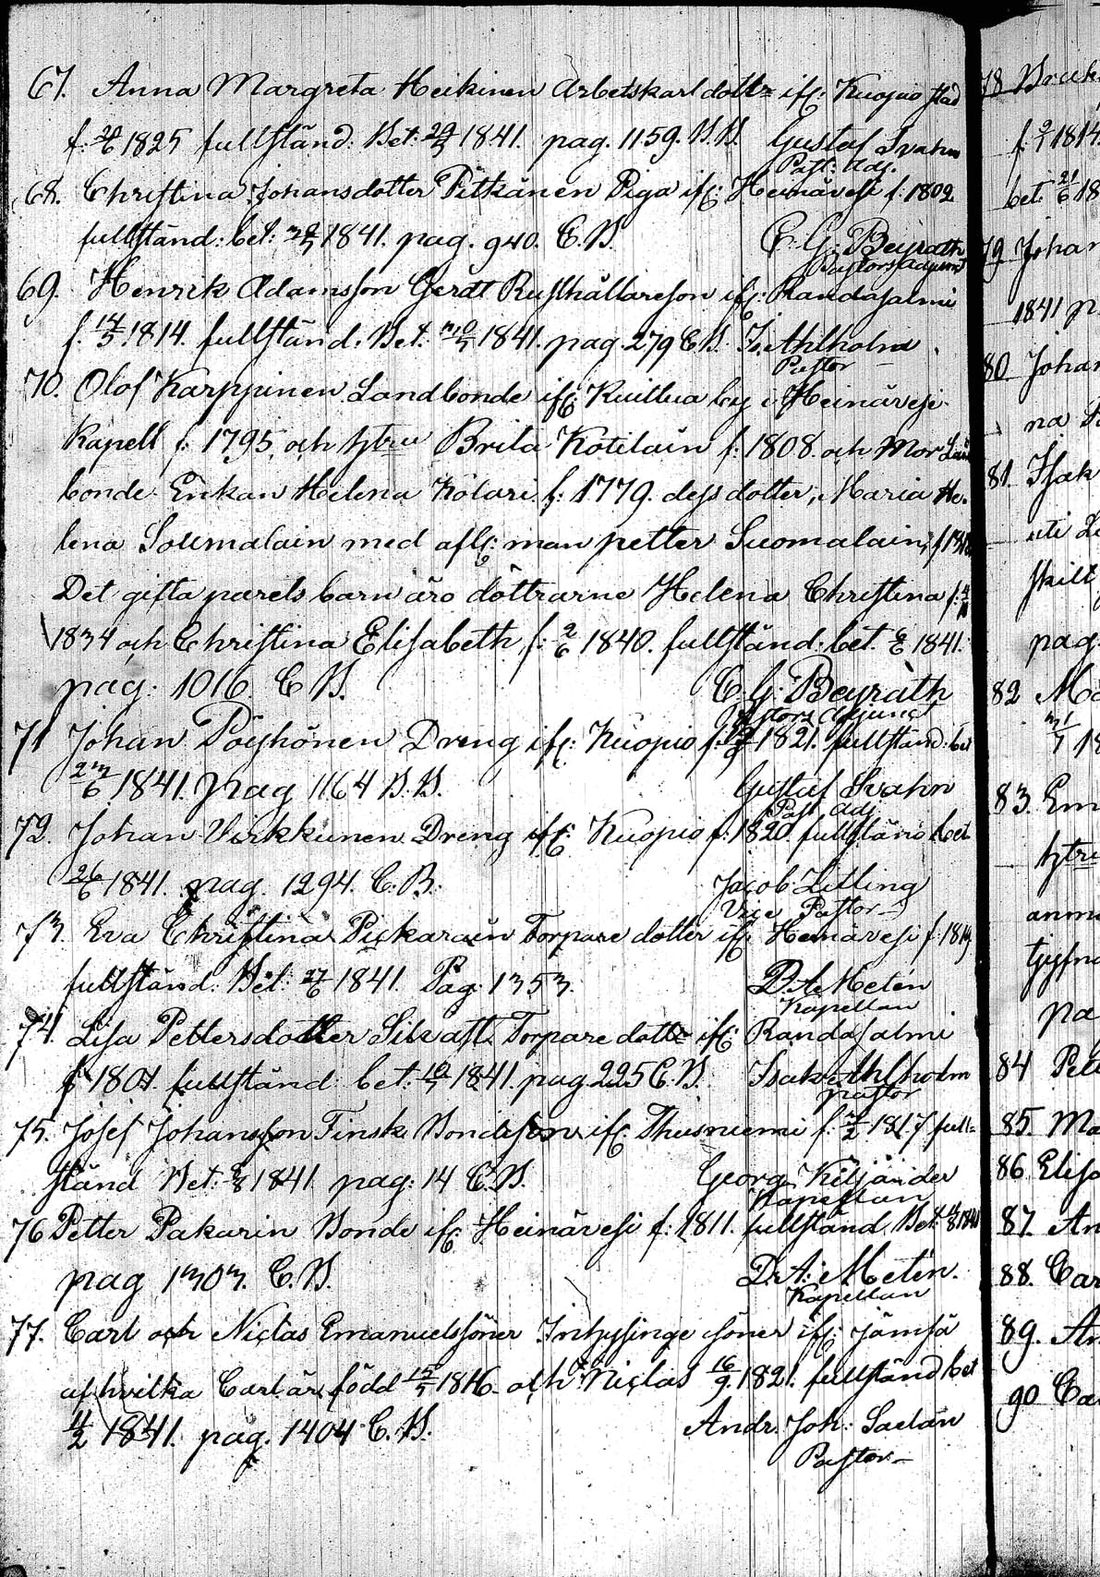 67. Anna Margreta Heikinen Arbetskarl dotter ifr: Kuopio stad
f: 1825 fullständ: Bet: 1841. pag. 1159. B.B. Gustaf Svahn
Past: Adj.
68. Christina Johansdotter Pitkänen Piga ifr: Heinävesi f. 1802
fullständ: bet: 1841. pag. 940. C.B. C. G. Beyrath
Pastors Adjunct
69. Henrik Adamsson Gerdt Rusthållareson ifr: Randasalmi
f. 1814. fullständ. Bet. 1841. pag. 279 C.B. Is. Ahlholm
Pastor
70. Olof Karppinen Landbonde ifr: by i Heinävesi
Kapell f. 1795, och hstru Brita Kotilain f: 1808. och Mor Lan
bonde Enkan Helena Kolari f: 1779. dess dotter, Maria He-
lena Soumalain med afls: man petter Suomalain, f
Det gifta parets barn äro döttrarne Helena Christina f:
1834 och Christina Elisabeth f: 2/6 1840. fullständ: bet. 1841.
pag: 1016. C B. C. G. Beyrath
Pastors Adjunct
71 Johan Pöyhönen Dreng ifr: Kuopio f: 1821. fullständ: bet
23/6 1841. pag 1164 B.B. Gustaf Svahn
Past. Adj.
72. Johan Virkkunen Dreng ifr: Kuopio f: 1820. fullständ bet
26/6 1841. pag. 1294. C. B. Jacob Litling
Vice Pastor
73. Eva Christina Pickarain Torpare dotter ifr Heinävesi f: 1819
fullständ. Bet: 27/6 1841. Pag: 1353. D. A. Meten
Kapellan
74. Lisa Pettersdotter Silvast Torpare dotter ifr: Randasalmi
f 1801. fullständ: bet: 1841. pag 225 C.B. Isak Ahlholm
pastor
75. Josef Johansson Finsk Bondeson ifr: Thusniemi f. 1817 full-
ständ Bet: 1841. pag: 14 C.B. Georg Kiljänder
Kapellan
76 Petter Pakarin Bonde ifr: Heinävesi f: 1811. fullständ, Bet: 1841
pag 1303. C.B. D. A. Meten.
Kapellan
77. Carl och Niclas Emanuelssöner Inhysinge söner ifr: Jämsä
af hvilka Carl är född 1816 och Niclas 16/9 1821. fullständ bet
1841. pag. 1404 C.B. Andr. Joh: Saelan
Pastor
78
f: 1814.
bet: 21/6 18
79 Johan
1841 p
80 Johan
na
81. Isak
uti
skilt
pag.
82 Ma
18
83. Em
hstru
anm
pa
84 Pet
85. Ma
86 Elisa
87. An
88. Car
89. An
90 Ca